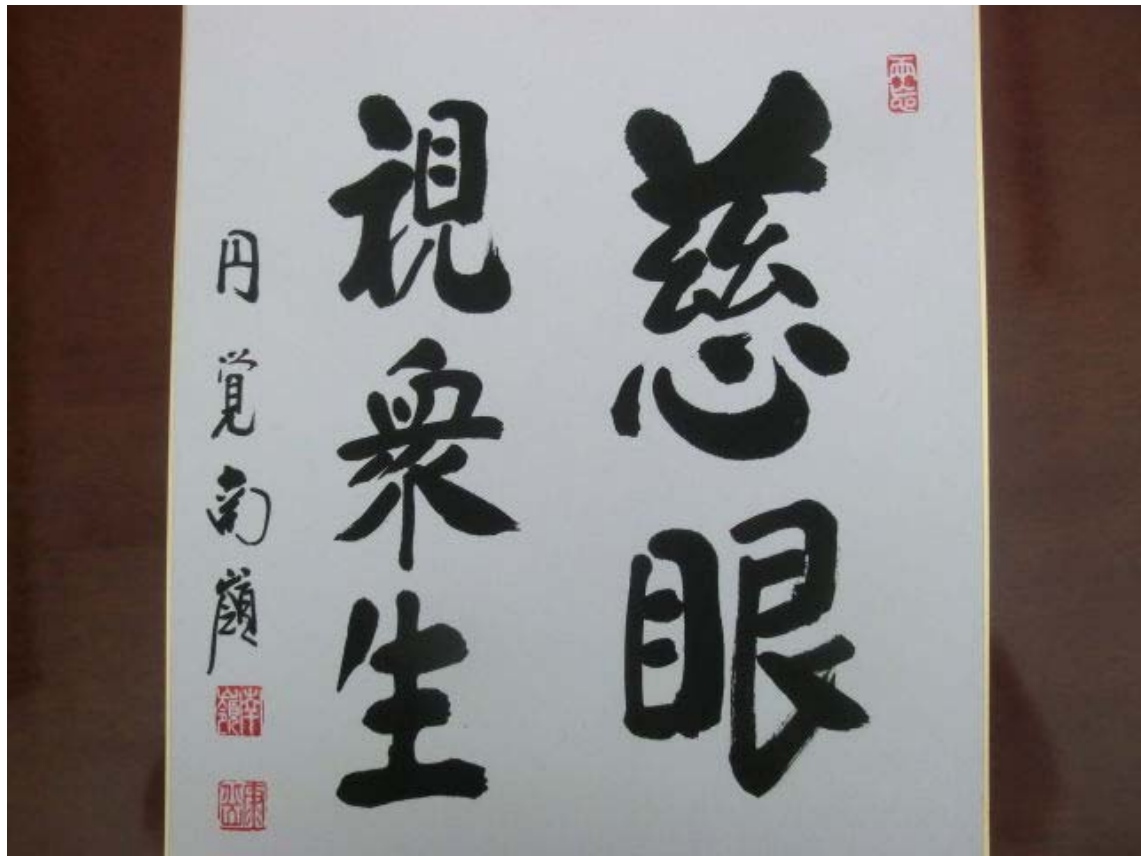 慈眼
視衆生
円覚南嶺
南嶺